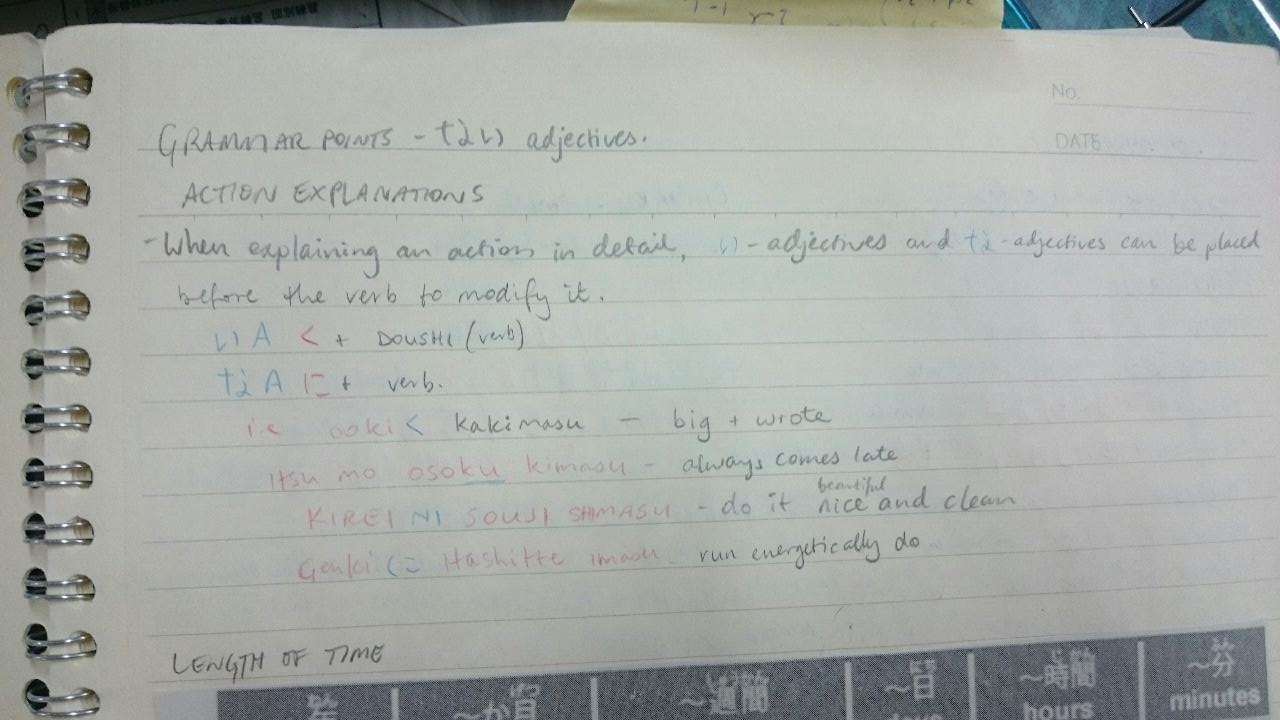 No.
DATE
GRAMMAR POINTS - ない adjectives.
ACTION EXPLANATIONS
- When explaining an action in detail, い-adjectives and な-adjectives can be placed
before the verb to modify it.
いA く + DOUSHI (verb)
なA に + verb.
i.e ookiく kakimasu - big + wrote
Itsu mo osoku kimasu - always comes late
beautiful
KIREI NI SOUJI SHIMASU - do it nice and clean
Genki に Hashitte imasu run energetically do
LENGTH OF TIME
年 ~か月 ~週間 ~日 ~時間 ~分
hours minutes